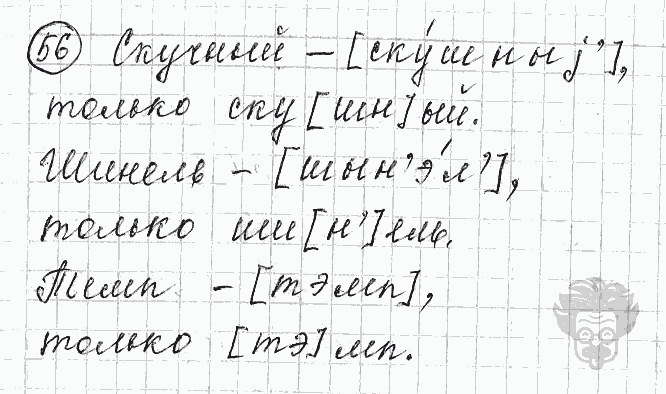 56 Скучный – [ску́шныj’],
только ску[шн]ый.
Шинель – [шын’э́л’],
только ши[н’]ель.
Темп – [тэмп],
только [тэ]мп.